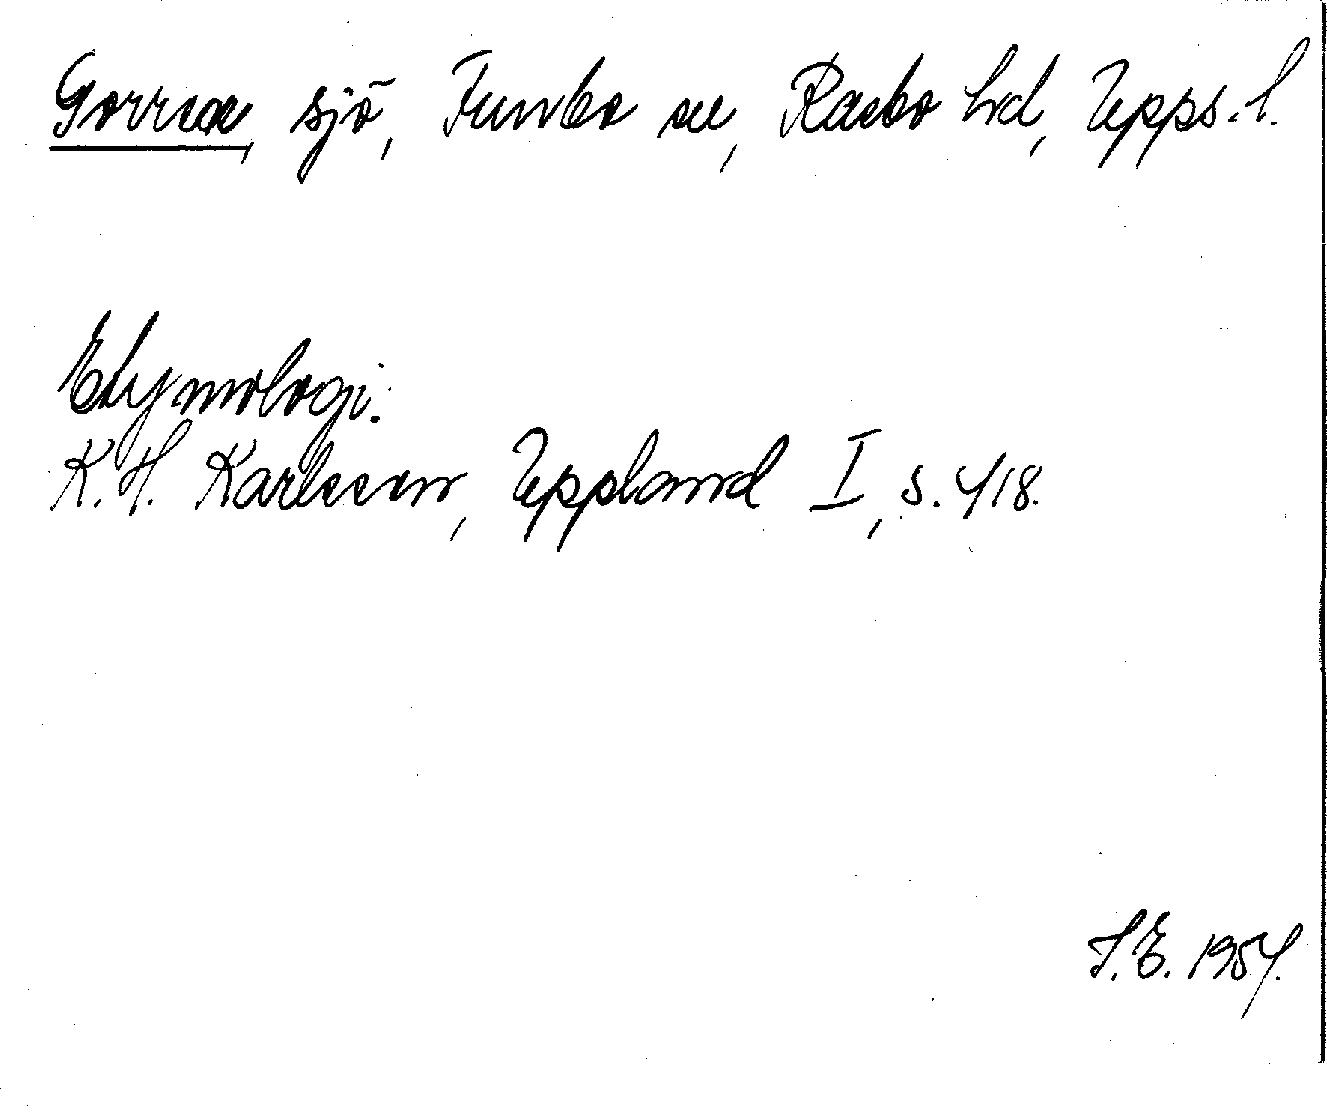 Gorran, sjö, Funbo sn, Rasbo hd, Upps. l.
Etymologi.
K. H. Karlsson, Uppland I, s. 418.
S. E. 1954.